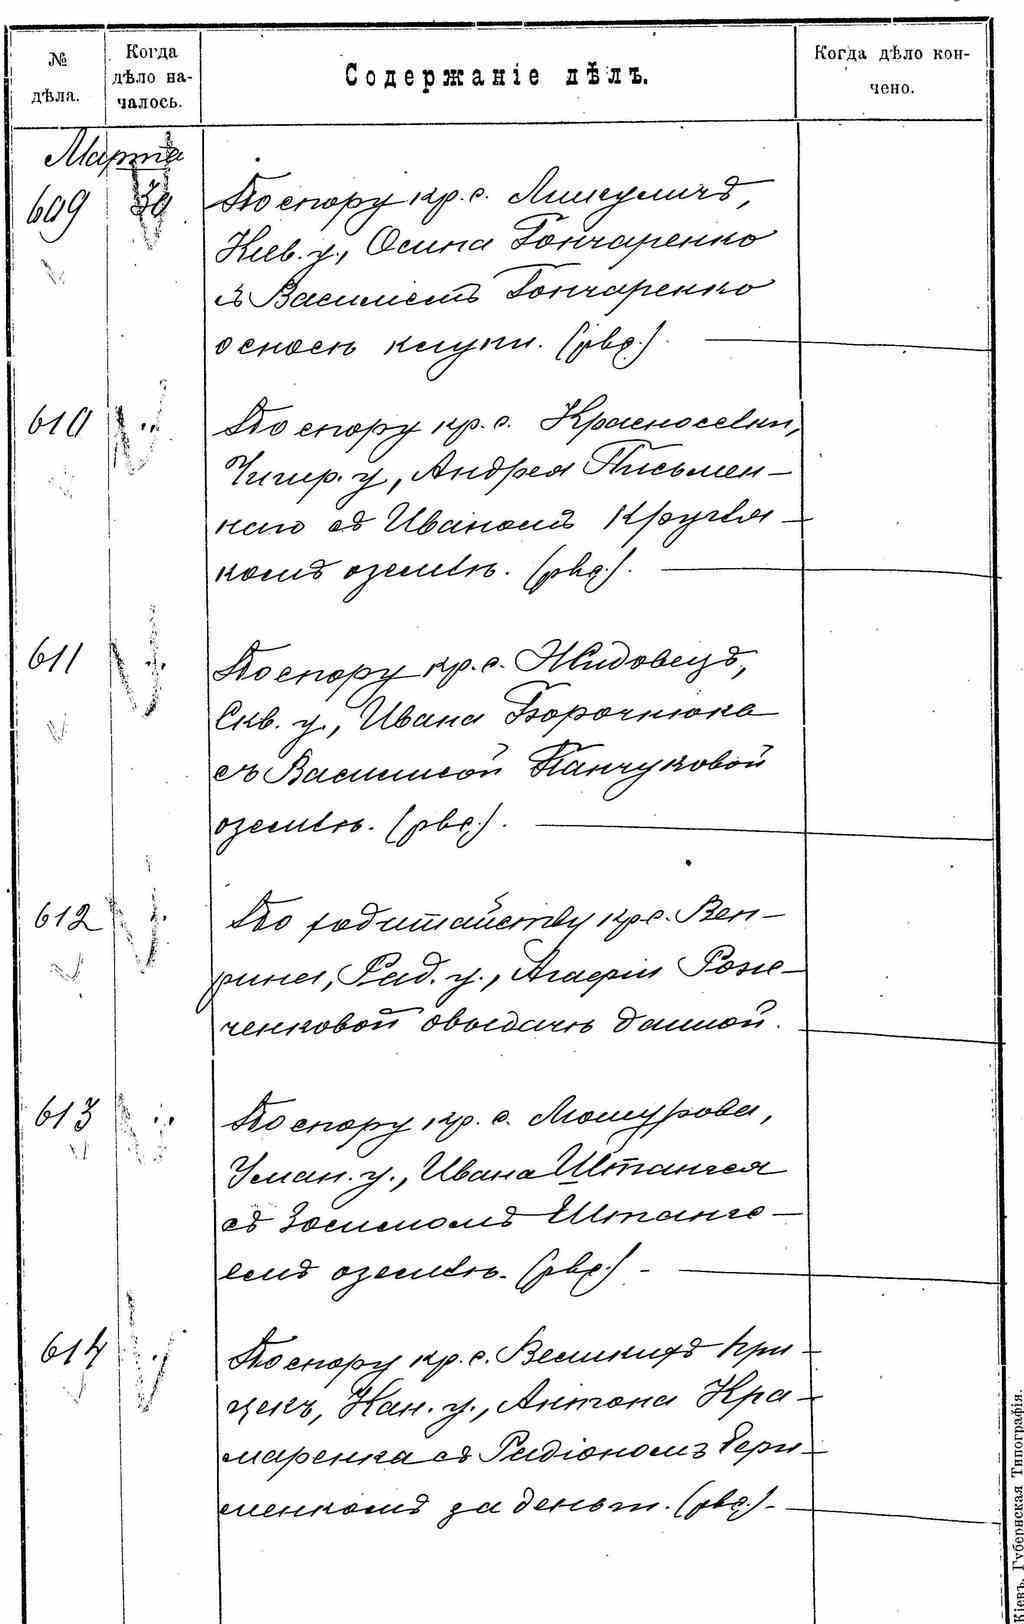 № дѣла.
Когда дѣло на-
чалось.
Содержаніе дѣлъ.
Когда дѣло кон-
чено.
Марта
609 30 По спору кр. с. Микуличъ,
Кіев. у., Осипа Гончаренко
съ Василіемъ Гончаренко
о сносѣ клуни. (рвс.).
610 По спору кр. с. Красноселки,
Чигир. у., Андрея Письмен-
наго съ Иваномъ Кругля-
комъ о землѣ. (рвс.).
611 По спору кр. с. Жидовецъ,
Скв. у., Ивана Борочнюка
съ Василисой Панчуковой
о землѣ. (рвс.).
612 По ходатайству кр. с. Веп-
рика, Рад. у., Агафіи Рож-
ченковой о выдачѣ данной.
613 По спору кр. с. Мошурова,
Уман. у., Ивана Штангея
съ Зосимомъ Штанге-
емъ о землѣ. (рвс.)
614 По спору кр. с. Великихъ При-
цекъ, Кан. у., Антона Кра-
маренка съ Родіономъ
менкомъ за деньги. (рвс.).
Кіевъ, Губернская Типографія.